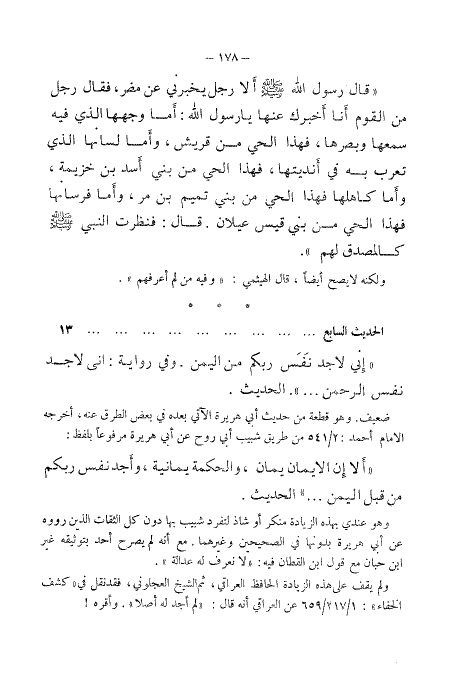 — ١٧٨ —
«قال رسول الله ﷺ ألا رجل يخبرني عن مضر، فقال رجل
من القوم أنا أخبرك عنها يارسول الله: أما وجهها الذي فيه
سمعها وبصرها، فهذا الحي من قريش، وأما لسانها الذي
تعرب به في أنديتها، فهذا الحي من بني أسد بن خزيمة،
وأما كاهلها فهذا الحي من بني تميم بن مر، وأما فرسانها
فهذا الحي من بني قيس عيلان. قال: فنظرت النبي ﷺ
كالمصدق لهم».
ولكنه لايصح أيضاً، قال الهيثمي: «وفيه من لم أعرفهم».
* * *
الحديث السابع ... ... ... ... ... ... ... ... ١٣
«إني لاجد نَفَس ربكم من اليمن. وفي رواية: انى لاجد
نفس الرحمن...». الحديث.
ضعيف. وهو قطعة من حديث أبي هريرة الآتي بعده في بعض الطرق عنه، أخرجه
الامام أحمد: ٥٤١/٢ من طريق شبيب أبي روح عن أبي هريرة مرفوعاً بلفظ:
«ألا إن الايمان يمان، والحكمة يمانية، وأجد نفس ربكم
من قبل اليمن ...» الحديث.
وهو عندي بهذه الزيادة منكر أو شاذ لتفرد شبيب بها دون كل الثقات الذين رووه
عن أبي هريرة بدونها في الصحيحين وغيرهما. مع أنه لم يصرح أحد بتوثيقه غير
ابن حبان مع قول ابن القطان فيه: «لا نعرف له عدالة».
ولم يقف على هذه الزيادة الحافظ العراقي، ثم الشيخ العجلوني، فقد نقل في «كشف
الخفاء»: ٦٥٩/٢١٧/١ عن العراقي أنه قال: «لم أجد له أصلا». وأقره!